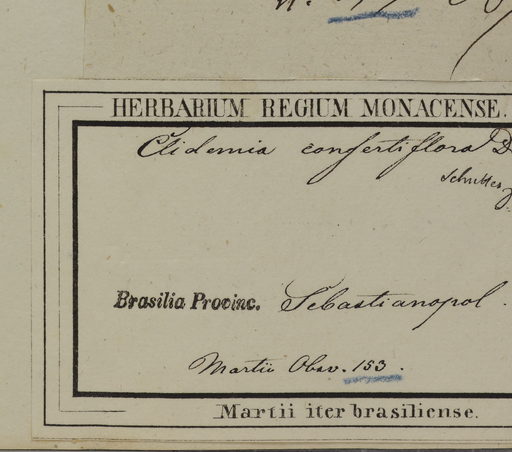 HERBARIUM REGIUM MONACENSE.
Clidemia confertiflora D
Brasilia Provinc. Sebastianopol.
Martii Obsv. 153.
Martii iter brasiliense.